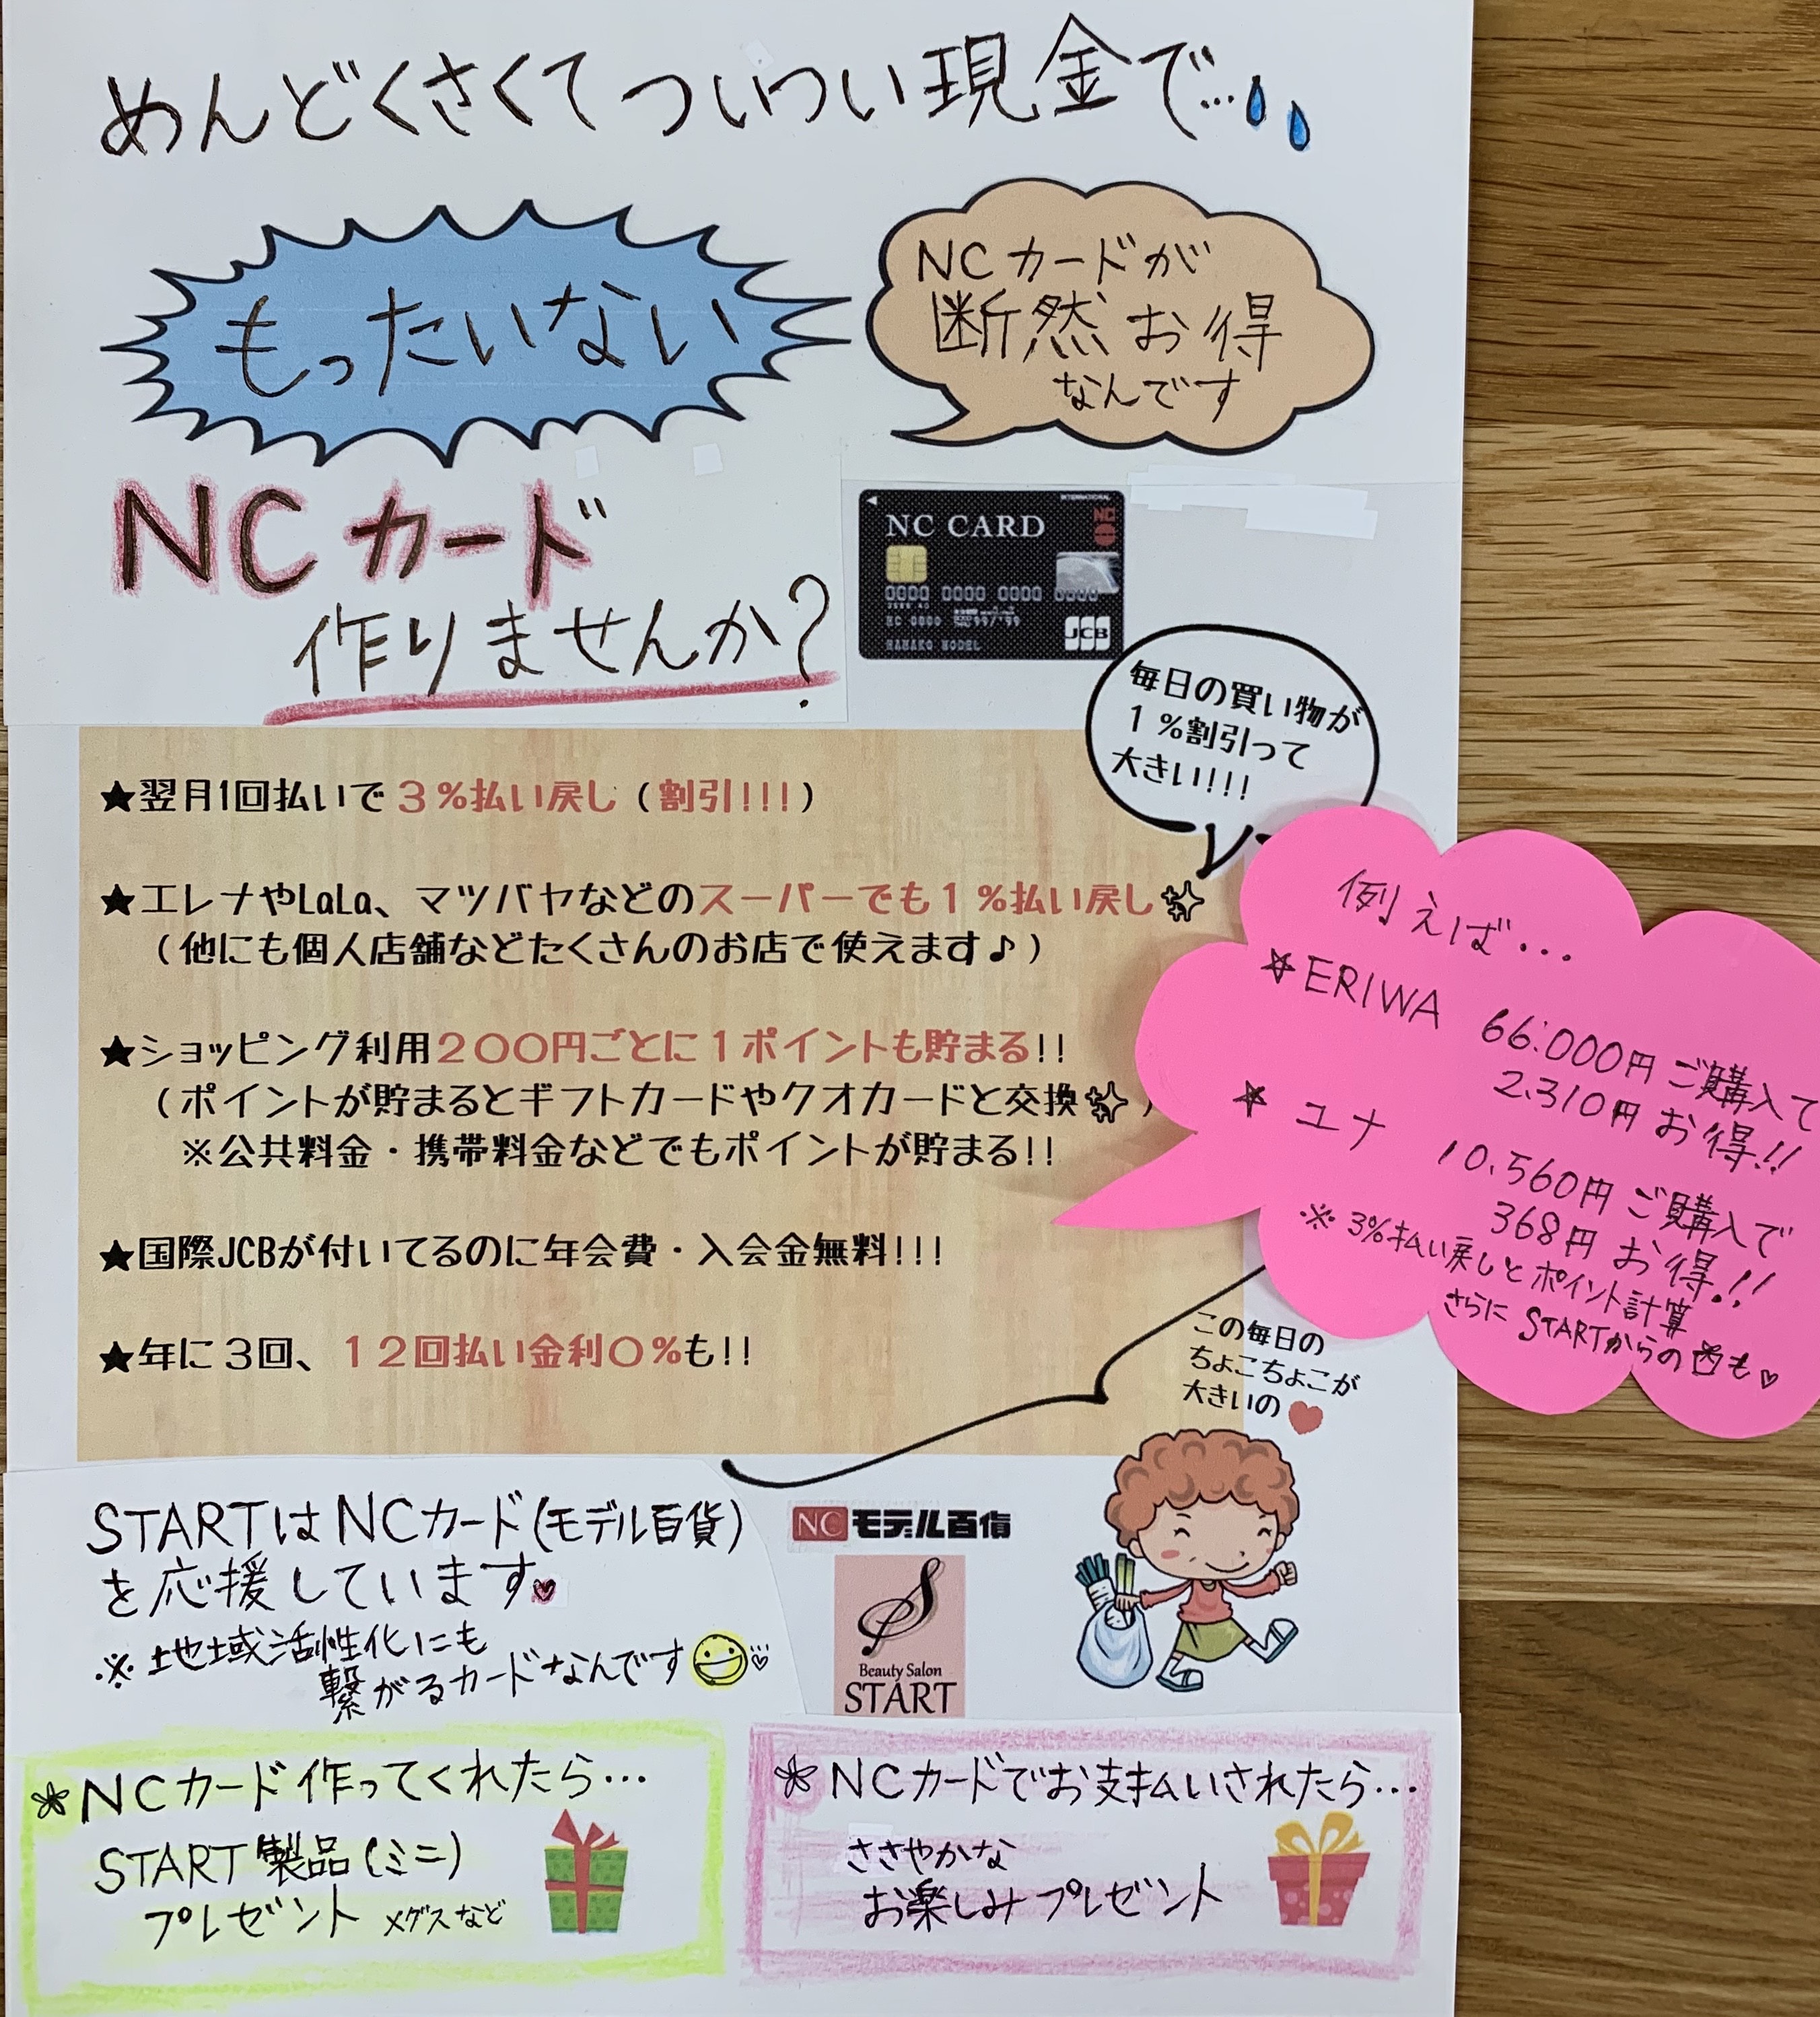 めんどくさくてついつい現金で…
もったいない
NCカードが
断然お得
なんです
NCカード
作りませんか?
INTERNATIONAL
NC CARD
NC
0000 0000 0000 0000
JCB
毎日の買い物が
1%割引って
大きい!!!
★翌月1回払いで3%払い戻し(割引!!!)
★エレナやLaLa、マツバヤなどのスーパーでも1%払い戻し
(他にも個人店舗などたくさんのお店で使えます♪)
★ショッピング利用200円ごとに1ポイントも貯まる!!
(ポイントが貯まるとギフトカードやクオカードと交換)
※公共料金・携帯料金などでもポイントが貯まる!!
★国際JCBが付いてるのに年会費・入会金無料!!!
★年に3回、12回払い金利0%も!!
例えば…
☆ERIWA 66.000円ご購入で
2.310円お得!!
☆ユナ 10.560円ご購入で
368円お得!!
※3%払い戻しとポイント計算
さらにSTARTからのも♡
この毎日の
ちょこちょこが
大きいの♥
STARTはNCカード(モデル百貨)
を応援しています♥
※地域活性化にも
繋がるカードなんです
NCモデル百貨
Beauty Salon
START
NCカード作ってくれたら…
START製品(ミニ)
プレゼント メグスなど
NCカードでお支払いされたら…
ささやかな
お楽しみプレゼント